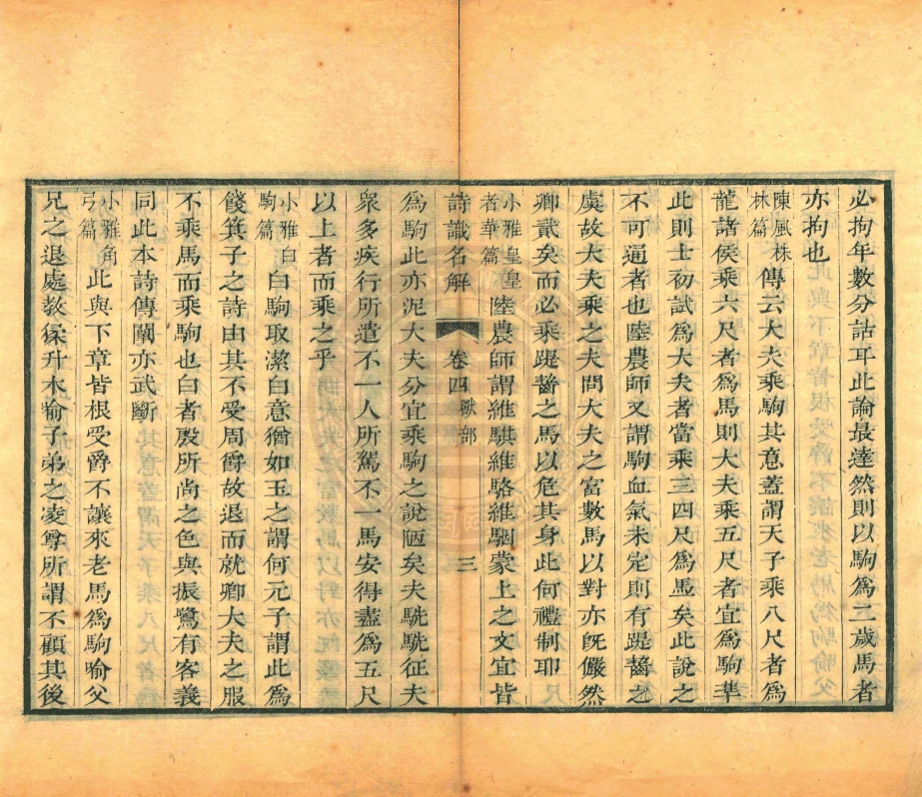 必拘年數分詁耳此論最達然則以駒為二歲馬者
亦拘也
陳風株林篇傳云大夫乘駒其意蓋謂天子乘八尺者為
龍諸侯乘六尺者為馬則大夫乘五尺者宜為駒準
此則士初試為大夫者當乘三四尺為馬矣此說之
不可通者也陸農師又謂駒血氣未定則有踶齧之
虞故大夫乘之夫問大夫之富數馬以對亦旣儼然
卿貳矣而必乘踶齧之馬以危其身此何禮制耶
小雅皇皇者華篇陸農師謂維騏維駱維駰蒙上之文宜皆
詩識名解 卷四獸部 三
為駒此亦泥大夫分宜乘駒之說陋矣夫駪駪征夫
衆多疾行所遣不一人所駕不一馬安得盡為五尺
以上者而乘之乎
小雅白駒篇白駒取潔白意猶如玉之謂何元子謂此為
餞箕子之詩由其不受周爵故退而就卿大夫之服
不乘馬而乘駒也白者殷所尚之色與振鷺有客義
同此本詩傳闡亦武斷
小雅角弓篇此與下章皆根受爵不讓來老馬為駒喻父
兄之退處教猱升木喻子弟之凌尊所謂不顧其後